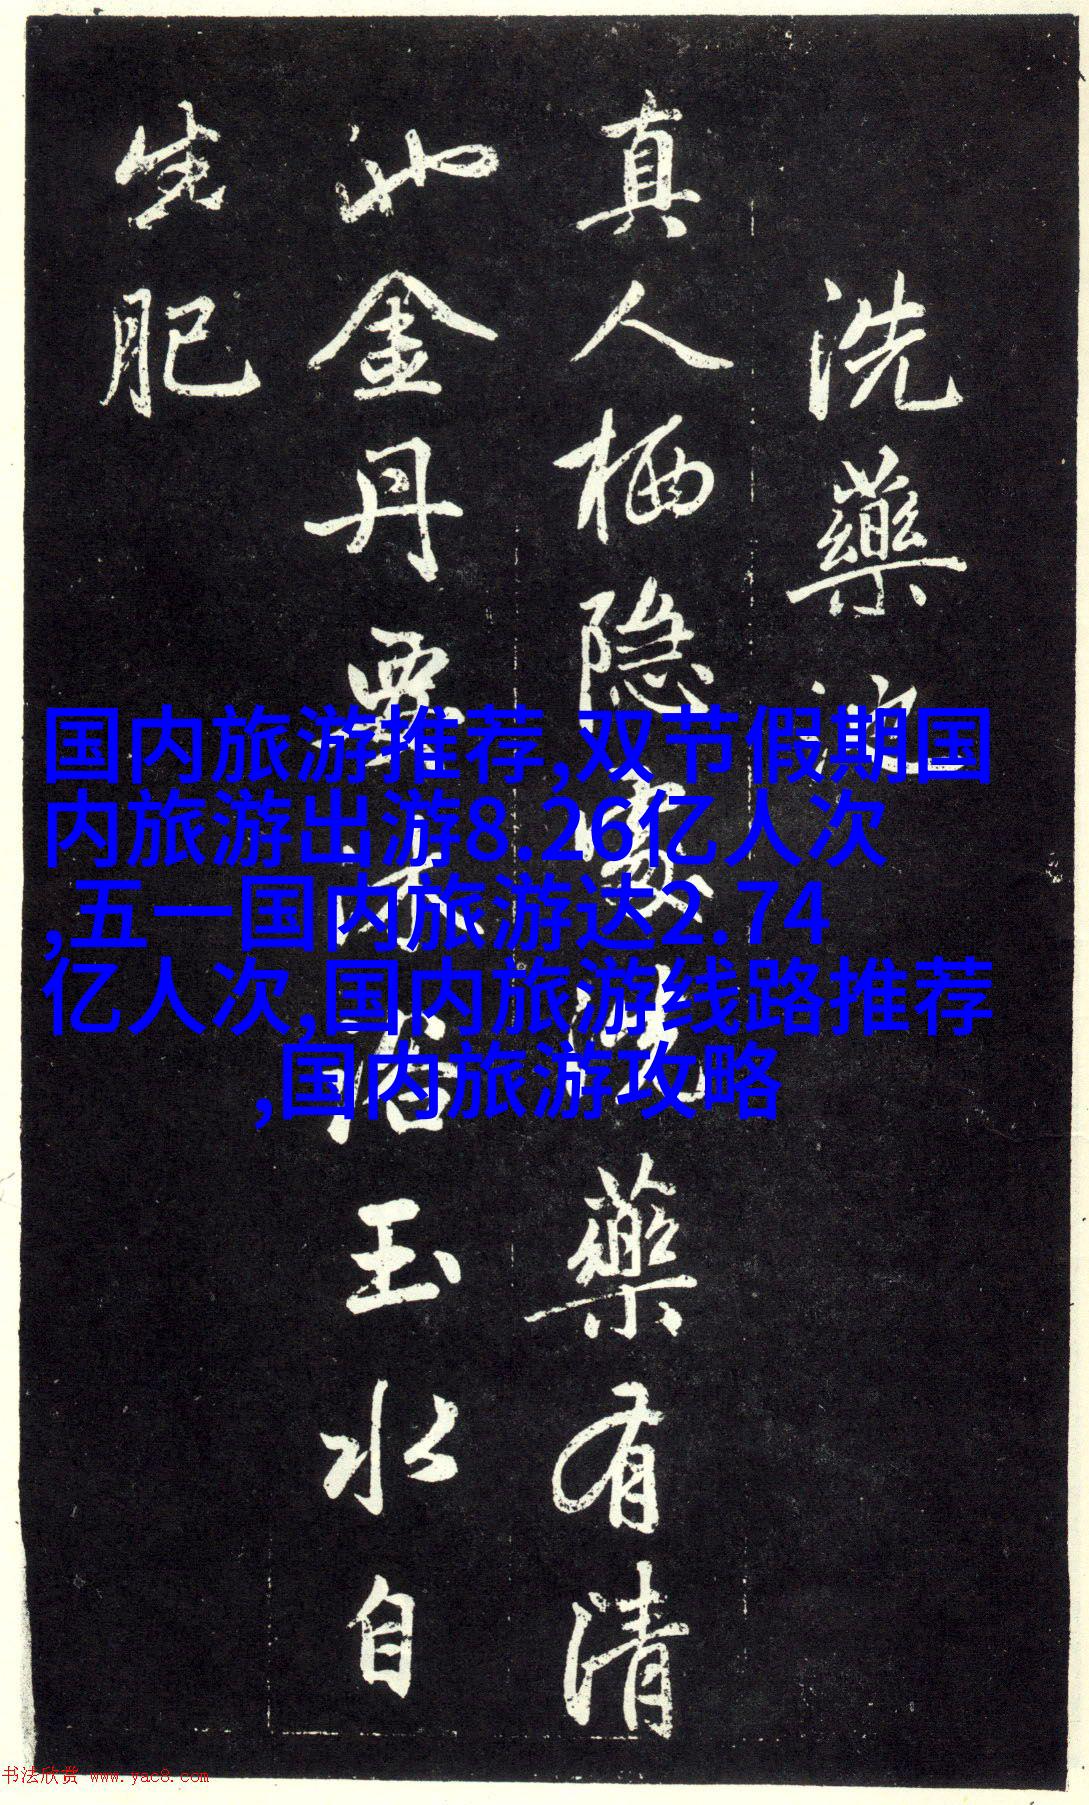 洗藥池
真人栖隐處洗藥有清
池金丹要沐浴玉水自
生肥
国内旅游推荐,双节假期国
内旅游出游8.26亿人次
,五一国内旅游达2.74
亿人次,国内旅游线路推荐
,国内旅游攻略
书法欣赏 www.yac8.com